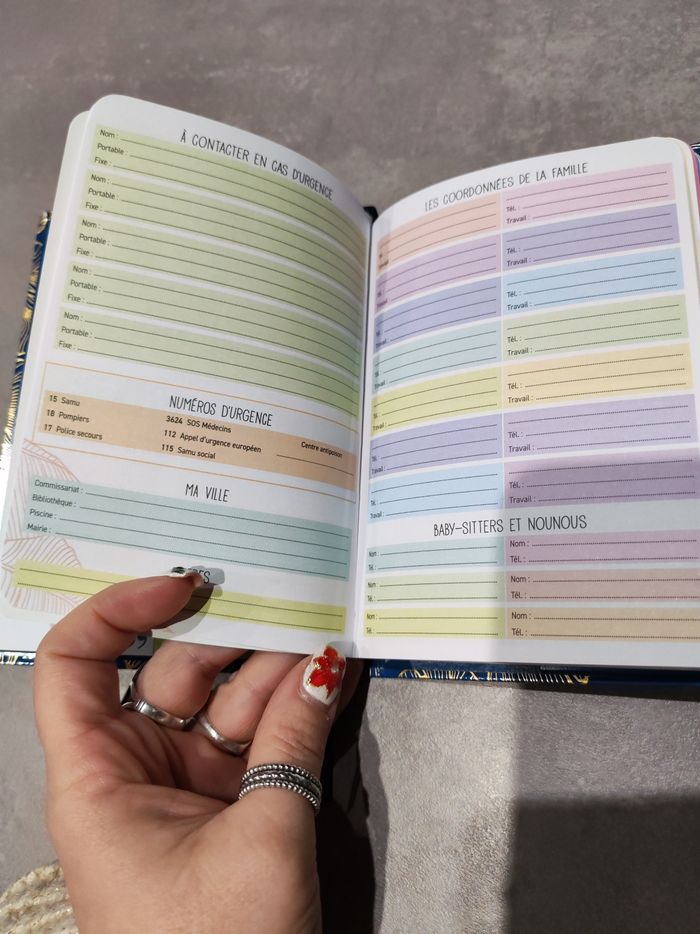 À CONTACTER EN CAS D'URGENCE
Nom :
Portable :
Fixe :
Nom :
Portable :
Fixe :
Nom :
Portable :
Fixe :
Nom :
Portable :
Fixe :
Nom :
Portable :
Fixe :
NUMÉROS D'URGENCE
15 Samu
18 Pompiers
17 Police secours
3624 SOS Médecins
112 Appel d'urgence européen
115 Samu social
Centre antipoison
MA VILLE
Commissariat :
Bibliothèque :
Piscine :
Mairie :
LES COORDONNÉES DE LA FAMILLE
Tél. :
Travail :
Tél. :
Travail :
Tél. :
Travail :
Tél. :
Travail :
Tél. :
Travail :
Tél. :
Travail :
Tél. :
Travail :
Tél. :
Travail :
Tél. :
Travail :
Tél. :
Travail :
Tél. :
Travail :
BABY-SITTERS ET NOUNOUS
Nom :
Tél. :
Nom :
Tél. :
Nom :
Tél. :
Nom :
Tél. :
Nom :
Tél. :
Nom :
Tél. :